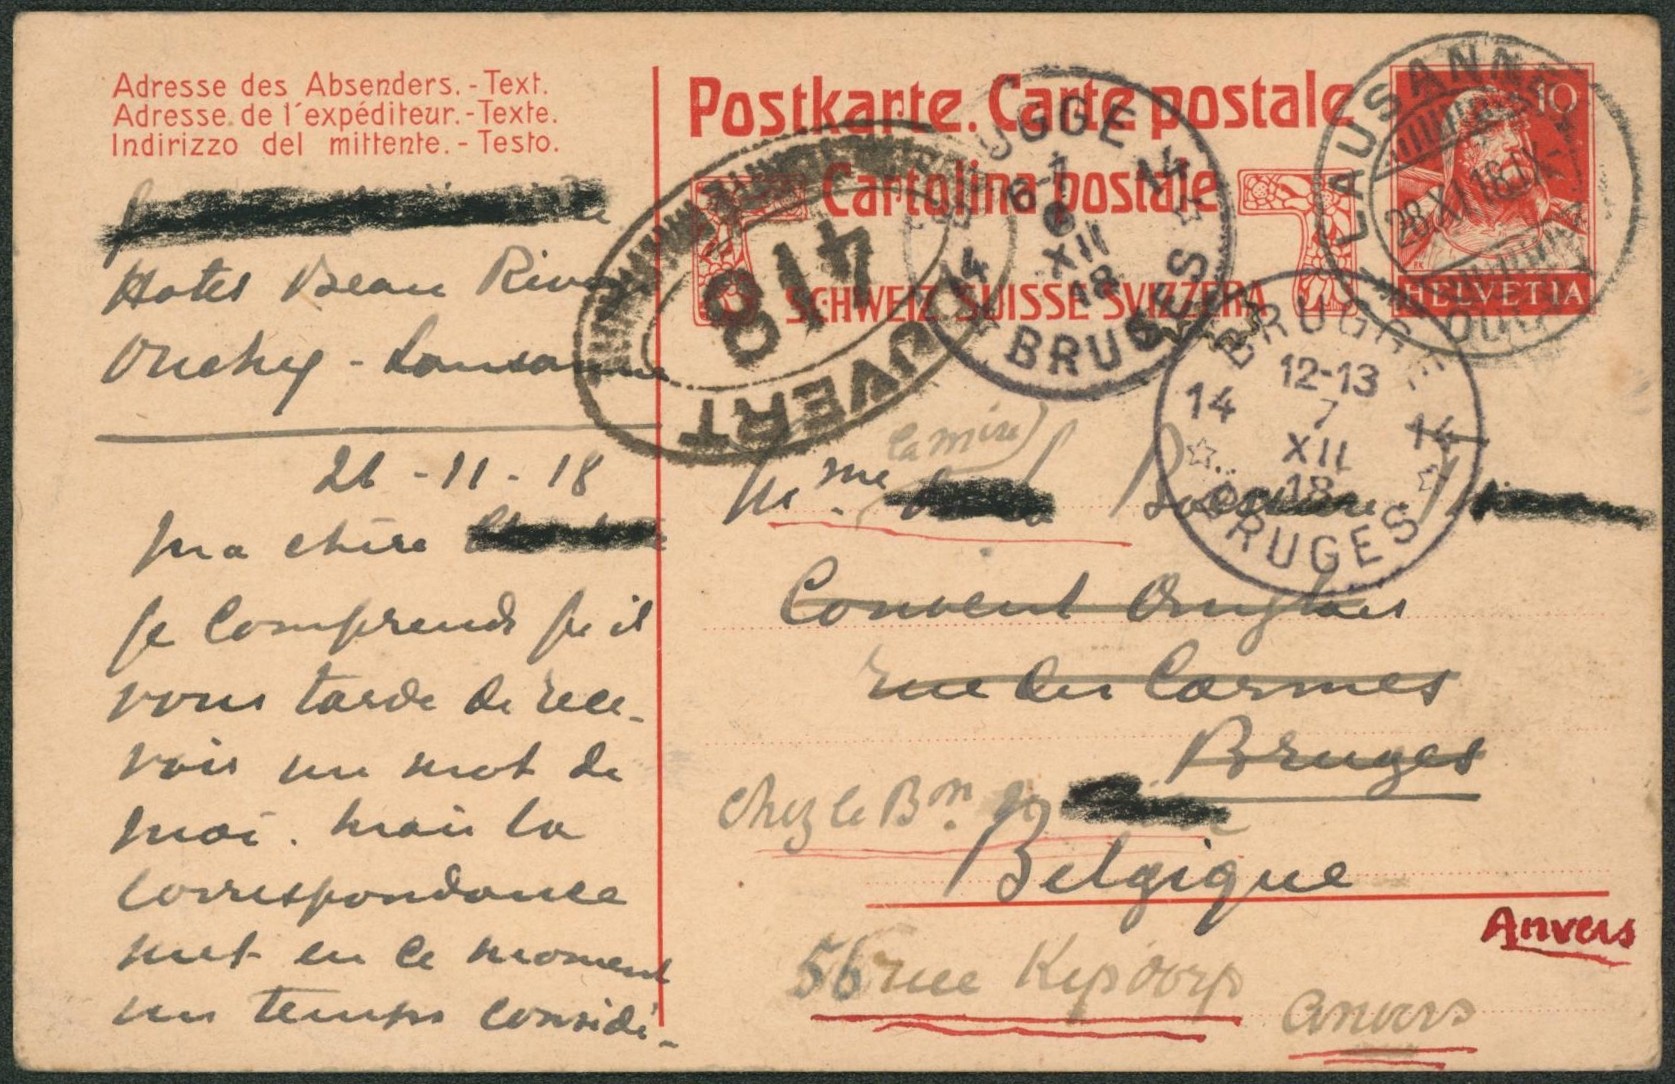 Adresse des Absenders. - Text.
Adresse de l'expéditeur. - Texte.
Indirizzo del mittente. - Testo.
Hotel Beau Riva
Ouchy - Lausanne
26 - 11 - 18
Ma chère
je comprends qu'il
vous tarde de rece-
voir un mot de
moi. Mais la
correspondance
met en ce moment
un temps considé-
Postkarte. Carte postale
Cartolina postale
SCHWEIZ SUISSE SVIZZERA
10
HELVETIA
LAUSANNE
28.XI.18.IX
OUVERT
418
BRUGGE
14 14
6-7
6
XII
18
BRUGES
BRUGGE
14 14
12-13
7
XII
18
BRUGES
(la mire)
Mme
Couvent Anglais
rue des Carmes
Bruges
chez le Bon
Belgique
Anvers
56 rue Kipdorp
Anvers